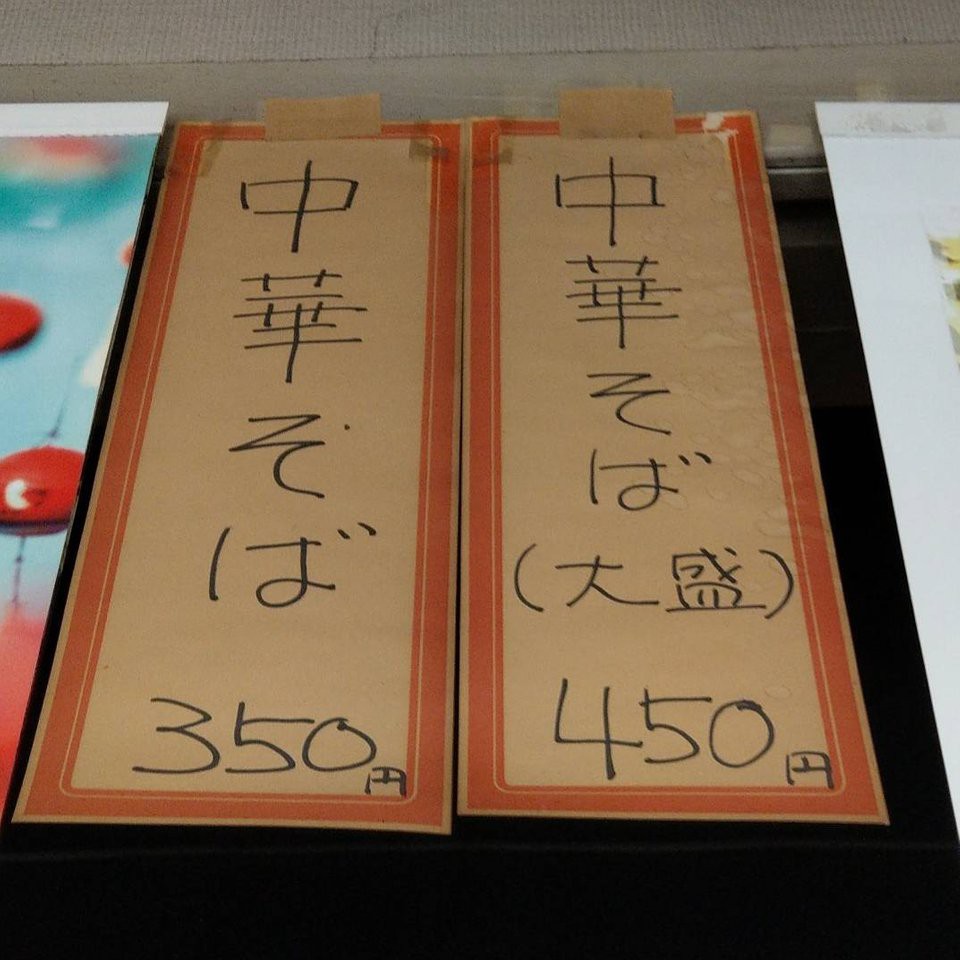 中華そば
350円
中華そば
(大盛)
450円